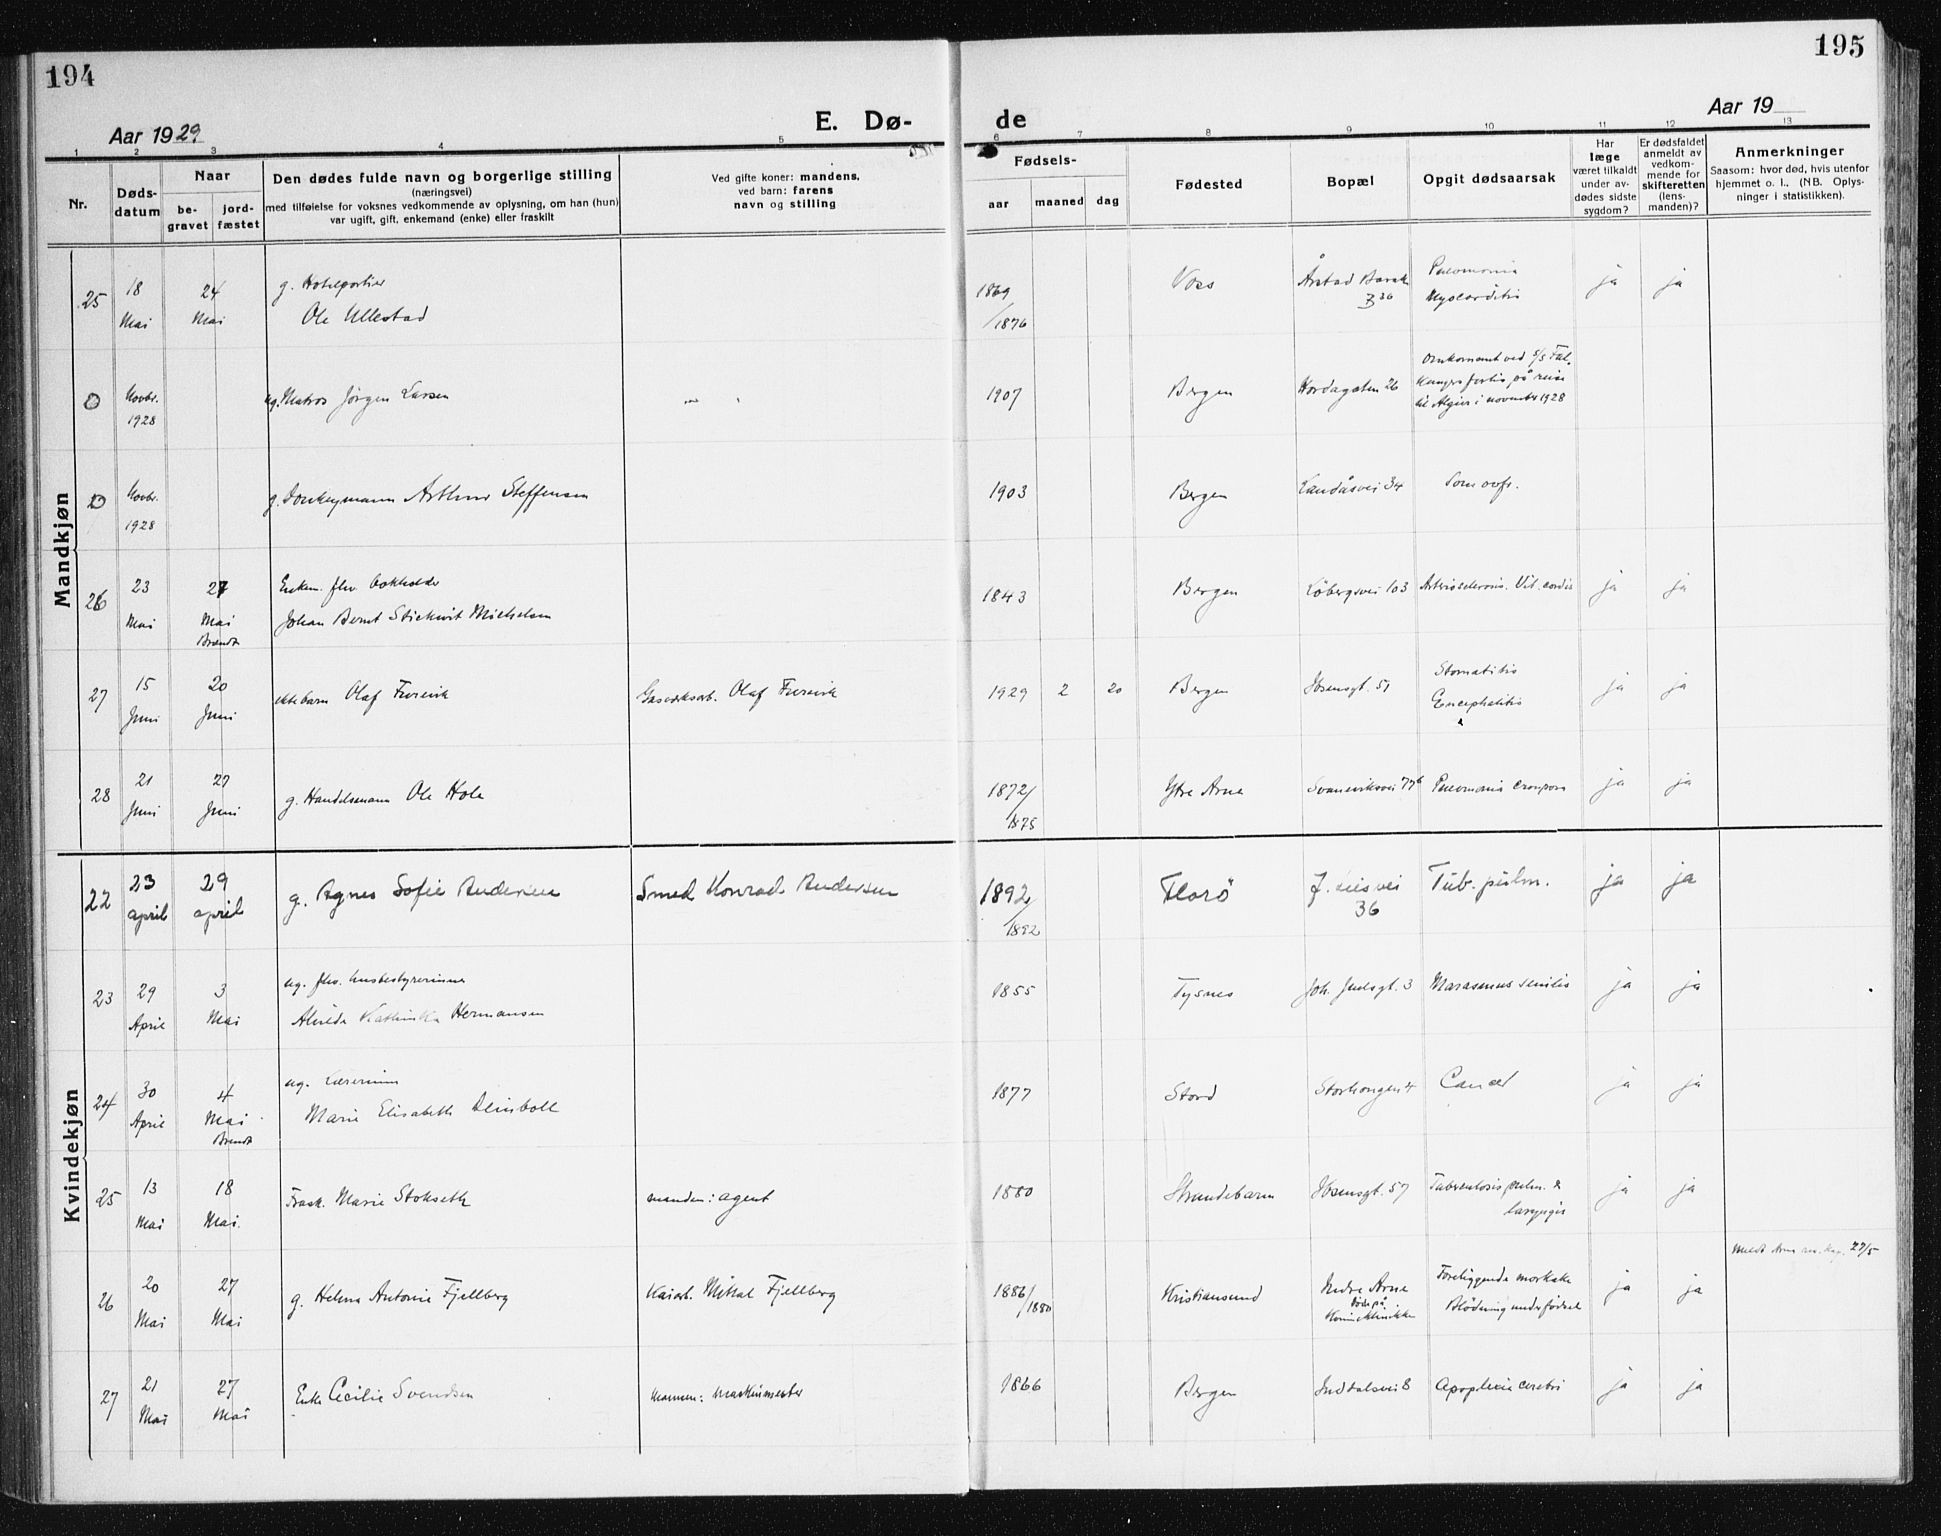 194
195
Aar 1929
E. Dø-
de
Aar 19
1 2 3 4 5 6 7 8 9 10 11 12 13
Nr.
Døds-
datum
Naar
be-
gravet
jord-
fæstet
Den dødes fulde navn og borgerlige stilling
(næringsvei)
med tilføielse for voksnes vedkommende av oplysning, om han (hun)
var ugift, gift, enkemand (enke) eller fraskilt
Ved gifte koner: mandens,
ved barn: farens
navn og stilling
Fødsels-
aar maaned dag
Fødested
Bopæl
Opgit dødsaarsak
Har
læge
været tilkaldt
under av-
dødes sidste
sygdom?
Er dødsfaldet
anmeldt av
vedkom-
mende for
skifteretten
(lens-
manden)?
Anmerkninger
Saasom: hvor død, hvis utenfor
hjemmet o. l., (NB. Oplys-
ninger i statistikken).
Mandkjøn
25
18
Mai
24
Mai
g. Hotelportier
Ole Ullestad
1869
/1876
Voss
Årstad Barak
B 36
Pneumonia
Myocarditis
ja
ja
0
Novbr.
1928
ug. Matros Jörgen Larsen
1907
Bergen
Hordagaten 26
Omkommet ved s/s Fal-
kangers forlis på reise
til Algier i november 1928
0
Novbr.
1928
g. Donkeymann Arthur Steffensen
1903
Bergen
Landåsvei 34
Som ovfr.
26
23
Mai
27
Mai
Brændt
Enkem. fhv. bokholder
Johan Bernt Stickwit Michelsen
1843
Bergen
Löbergsvei 103
Arteriosclerosis. Vit. cordis
ja
ja
27
15
Juni
20
Juni
ektebarn Olaf Furevik
Gasverksarb. Olaf Furevik
1929 2 20
Bergen
Ibsensgt. 51
Stomatitis
Encephalitis
ja
ja
28
21
Juni
27
Juni
g. Handelsmann Ole Hole
1872/
1875
Ytre Arna
Svaneviksvei 77b
Pneumonia crouposa
ja
ja
Kvindekjøn
22
23
april
29
april
g. Agnes Sofie Andersen
Smed Konrad Andersen
1892/
/1892
Florö
J. Liesvei
36
Tub. pulm.
ja
ja
23
29
April
3
Mai
ug. fhv. husbestyrerinne
Alvilda Kathinka Hermansen
1855
Tysnes
Joh. Juelsgt. 3
Marasmus senilis
ja
ja
24
30
April
4
Mai
Brændt
ug. Lærerinne
Marie Elisabeth Deinboll
1877
Stord
Storhaugen 4
Cancer
ja
ja
25
13
Mai
18
Mai.
Frask. Marie Stokseth
manden: agent
1880
Strandebarm
Ibsensgt. 57
Tuberculosis pulm. &
laryngis
ja
ja
26
20
Mai
27
Mai
g. Helma Antonie Fjellberg
Kaiarb. Mikal Fjellberg
1886/
/1880
Kristiansund
Indre Arna
Död på
Kvinneklinikken
Foreliggende morkake
Blödning under födsel
ja
ja
Meldt Arna res. kap. 27/5
27
21
Mai
27
Mai
Enke Cecilie Svendsen
Mannen: maskinmester
1866
Bergen
Inndalsvei 8
Apoplexia cerebri
ja
ja